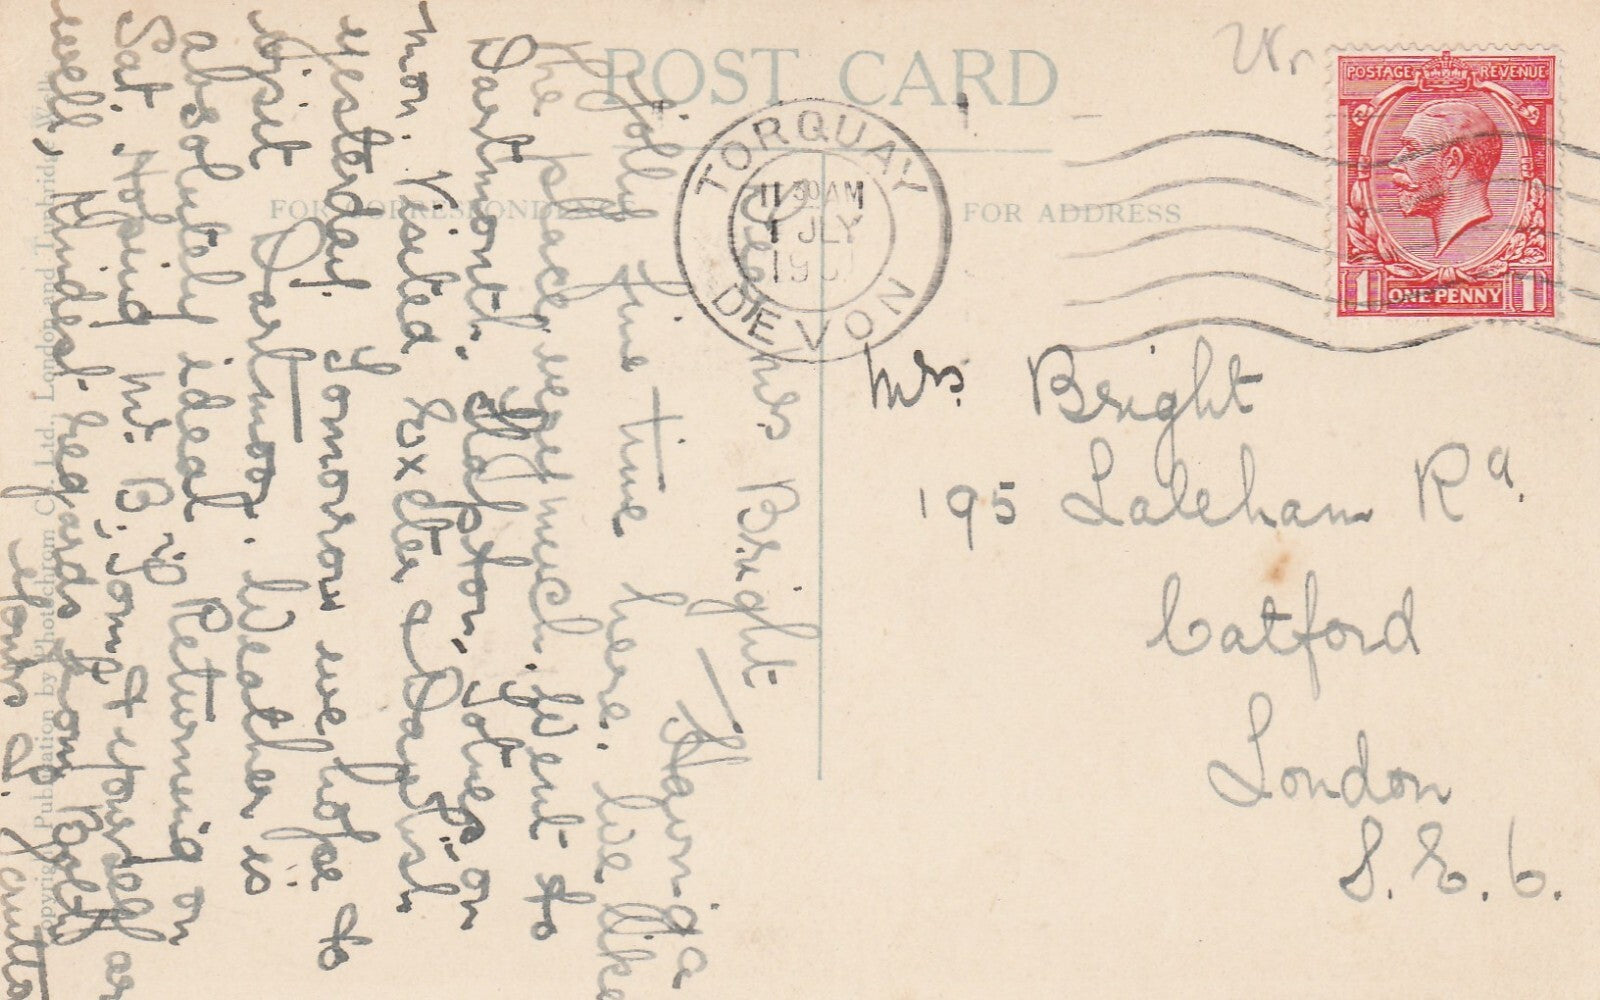 POST CARD
FOR CORRESPONDENCE
FOR ADDRESS
TORQUAY
DEVON
11 30 AM
1 JLY
POSTAGE REVENUE
1 ONE PENNY 1
Mrs. Bright
195 Laleham Rd.
Catford
London
S.E.6.
Dear Mrs Bright
Having a
jolly fine time here. We like
the place very much. Went to
Dartmouth, on
Mon. Visited Exeter & Dawlish
yesterday. Tomorrow we hope to
visit Dartmoor. Weather is
absolutely ideal. Returning on
Sat. Hoping Mr. B, & yourself are
well, Kindest regards from Both
Yours S.
Copyright Publication by Photochrom Co. Ltd., London and Tunbridge